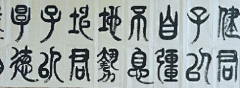 健君
子以
自彊
不息
地勢
坤君
子以
厚德